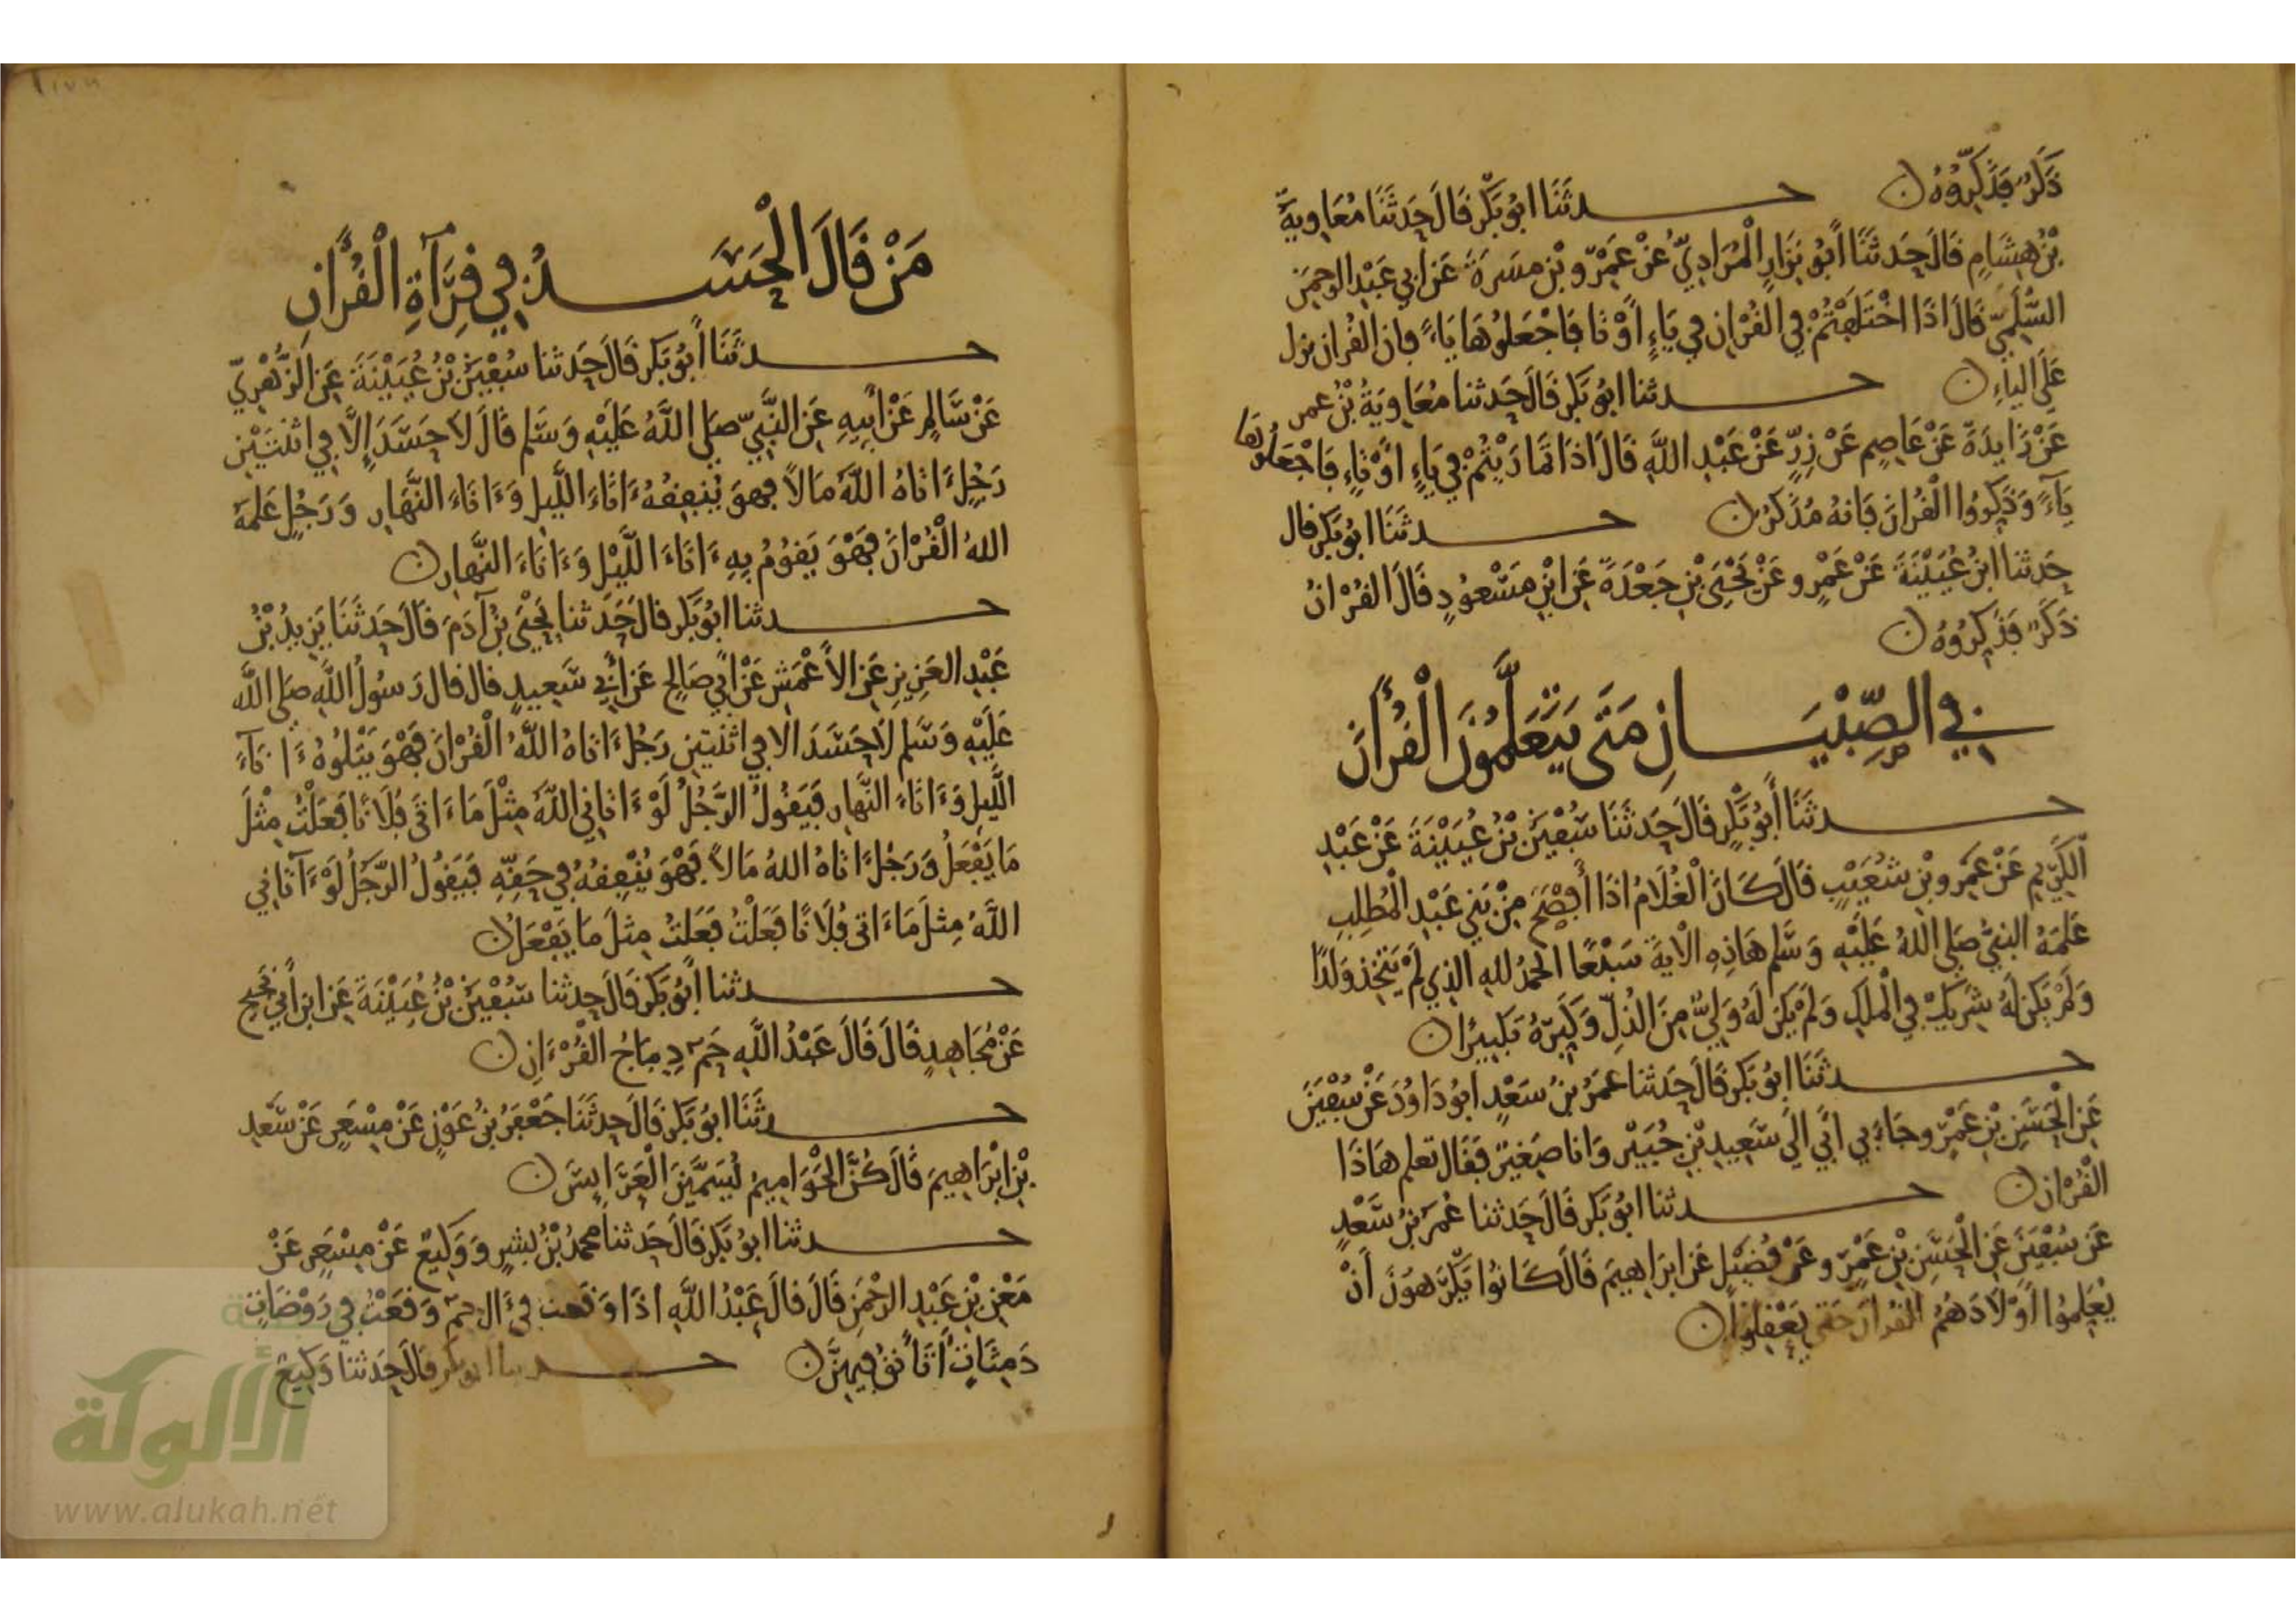 ذَكَرٌ فَذَكِّرُوهُ ۝ حدثَنَا ابُو بَكْرٍ قَالَ حَدثَنَا مُعَاوِيةُ
بْنُ هِشَامٍ قَالَ حَدثَنَا أَبُو نِزَارٍ الْمُرَادِيُّ عَنْ عَمْرِو بْنِ مسَرةَ عَن أبي عَبْدِ الرحمَنِ
السُّلَمِيِّ قَالَ اذَا اخْتَلَفْتُمْ في القُرْانِ في يَاءٍ أوْ تا فَاجْعَلُوهَا يَاءً فان القُران نزل
عَلَى الياءِ ۝ حدثنا ابُو بَكْرٍ قَالَ حَدثنا مُعَاوِيَةُ بْنُ عمر
عَنْ زَايدَةَ عَنْ عَاصِم عَنْ زِرٍّ عَنْ عَبْدِ اللَّهِ قَالَ اذَا تَمَارَيْتُمْ في يَاءٍ اوْ تَاءٍ فَاجْعَلُوهَا
يَآءً وَذَكِّرُوا الْقُرانَ فَانهُ مُذَكرٌ ۝ حدثَنَا ابُو بَكْرٍ قال
حَدثنا ابْنُ عُيَيْنَةَ عَنْ عَمْرٍو عَنْ يَحْيَى بْنِ جَعْدَةَ عَنِ ابْنِ مَسْعُودٍ قَالَ القُرْانُ
ذَكَرٌ فَذَكِّرُوهُ ۝
في الصِّبْيَانِ مَتَى يَتَعَلَّمُونَ الْقُرْأَنَ
حدثَنَا أَبُو بَكْرٍ قَالَ حَدثَنَا سُفْيَنُ بْنُ عُيَيْنَةَ عَنْ عَبْدِ
الْكَرِيمِ عَنْ عَمْرِو بْنِ شُعَيْبٍ قَالَ كَانَ الْغُلَامُ اذَا أَفْصَحَ مِنْ بَنِي عَبْدِ الْمُطلِبِ
عَلمَهُ النبيُّ صَلى اللهُ عَلَيْهِ وَسَّلم هَاذِهِ الْآيةَ سَبْعًا الحمْدُ للهِ الذِي لَمْ يَتَّخِذْ وَلَدًا
وَلَمْ يَكُن لَهُ شَرِيكٌ في الْملكِ وَلَمْ يَكُن لَهُ وَلِيٌّ مِنَ الذُلِّ وَكَبِّرْهُ تَكْبِيرًا ۝
حدثَنَا ابُو بَكْرٍ قَالَ حَدثنا عمَرُ بنُ سَعْدٍ ابُو دَاوُدَ عَنْ سُفْيَنَ
عَنِ الْحَسَنِ بْنِ عَمْرٍو جَاءَ بي ابِي الَى سَعِيدِ بْنِ جُبَيْرٍ وَانا صَغِيرٌ فَقَال تعلم هَاذَا
الْقُرْانَ ۝ حدثنا ابُو بَكْرٍ قَالَ حَدثنا عُمَرُ بْنُ سَعْدٍ
عَن سُفْيَنَ عَنِ الْحَسَنِ بْنِ عَمْرٍو عَنْ فُضَيْلٍ عَن ابرَاهِيمَ قَالَ كَانُوا يَكْرَهونَ أَنْ
يُعَلِمُوا أَوْلَادَهُمُ القُرانَ حَتى يَعْقِلُوا ۝
مَنْ قَالَ الْحَسَدُ في قِرَآةِ الْقُرْأنِ
حدثَنَا أَبُو بَكْرٍ قَالَ حَدثنا سُفْيَنُ بْنُ عُيَيْنَةَ عَنِ الزُّهْرِيّ
عَنْ سَّالِمٍ عَنْ أَبِيهِ عَنِ النَّبِيِّ صَلى اللَّهُ عَلَيْهِ وَسَّلم قَالَ لَا حَسَدَ إِلَّا في اثْنَتَيْنِ
رَجُلٍ ءَاتَاهُ اللَّهُ مَالاً فهوَ يُنْفِقُهُ ءَانَاءَ اللَّيلِ وَءَانَاءَ النَّهَارِ وَرَجُلٍ عَلمَهُ
اللهُ الْقُرْانَ فَهْوَ يَقُومُ بِهِ ءَانَاءَ اللَّيْلِ وَءَانَاءَ النَّهار ۝
حدثنا ابُو بَكْرٍ قال حَدَثنا يَحْيَى بْنُ آدَمَ قَالَ حَدثَنَا يَزِيدُ بْنُ
عَبْدِ العَزِيزِ عَنِ الأَعْمَشِ عَنْ أبي صَالِحٍ عَن أَبِي سَّعِيدٍ قال قال رَسُولُ اللَّهِ صَلى اللَّه
عَلَيْهِ وَسَّلم لَا حَسَدَ الا في اثنَتينِ رَجُلٌ ءَاتَاهُ اللَّهُ الْقُرْانَ فَهْوَ يَتْلُوهُ ءَانَآءَ
اللَّيلِ وَءَانَاءَ النَّهارِ فَيَقُولُ الرَّجُلُ لَوْ ءَاتَانِي اللَّهُ مِثْلَ مَا ءَاتَى فُلَانًا فَعَلْتُ مِثْلَ
مَا يَفْعَلُ وَرَجُلٌ ءَاتَاهُ اللهُ مَالاً فَهْوَ يُنْفِقُهُ في حَقِّهِ فَيَقُولُ الرَّجُلُ لَوْ ءَآتَانِي
اللَّهُ مِثلَ مَا ءَاتى فُلَانًا فَعَلْتُ فَعَلتُ مِثلَ مَا يَفْعَلُ ۝
حدثنا أَبُو بَكْرٍ قَالَ حَدثنا سُفْيَنُ بْنُ عُيَيْنَةَ عَنِ ابن أَبي نَجيح
عَنْ مُجَاهِدٍ قَالَ قَالَ عَبْدُ اللَّهِ حَم دِيبَاجُ الْقُرْءَانِ ۝
حدثَنَا ابُو بَكْرٍ قَالَ حَدثَنَا جَعْفَرُ بْنُ عَوْنٍ عَنْ مِسْعَرٍ عَنْ سَّعْدِ
بْنِ ابْرَاهِيمَ قَالَ كُنَّ الْحَوَامِيمُ يُسَمَّيْنَ الْعَرَايِسَ ۝
حدثنا ابُو بَكْرٍ قَالَ حَدثنا محمدُ بْنُ بِشرٍ وَوَكِيعٌ عَنْ مِسْعَرٍ عَنْ
مَعْنِ بْنِ عَبْدِ الرحْمَنِ قَالَ قالَ عَبْدُ اللَّهِ اذَا وَقعت في ءَال حمٓ وَقَعْتُ في رَوْضَاتٍ
دَمِثَاتٍ أَتَأَنَّقُ فِيهِنَّ ۝ حدثنا ابو بكر قَالَ حَدثنا وَكِيعٌ
الألوكة
www.alukah.net